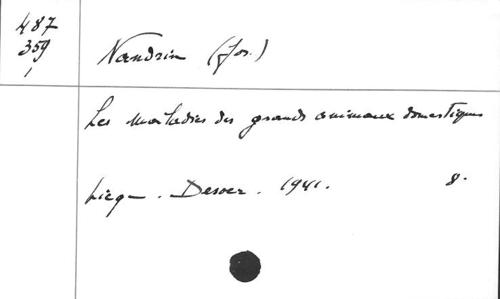 487
359
1
Nandrin (Jos.)
Les maladies des grands animaux domestiques
Liège. Desoer. 1941. 8.